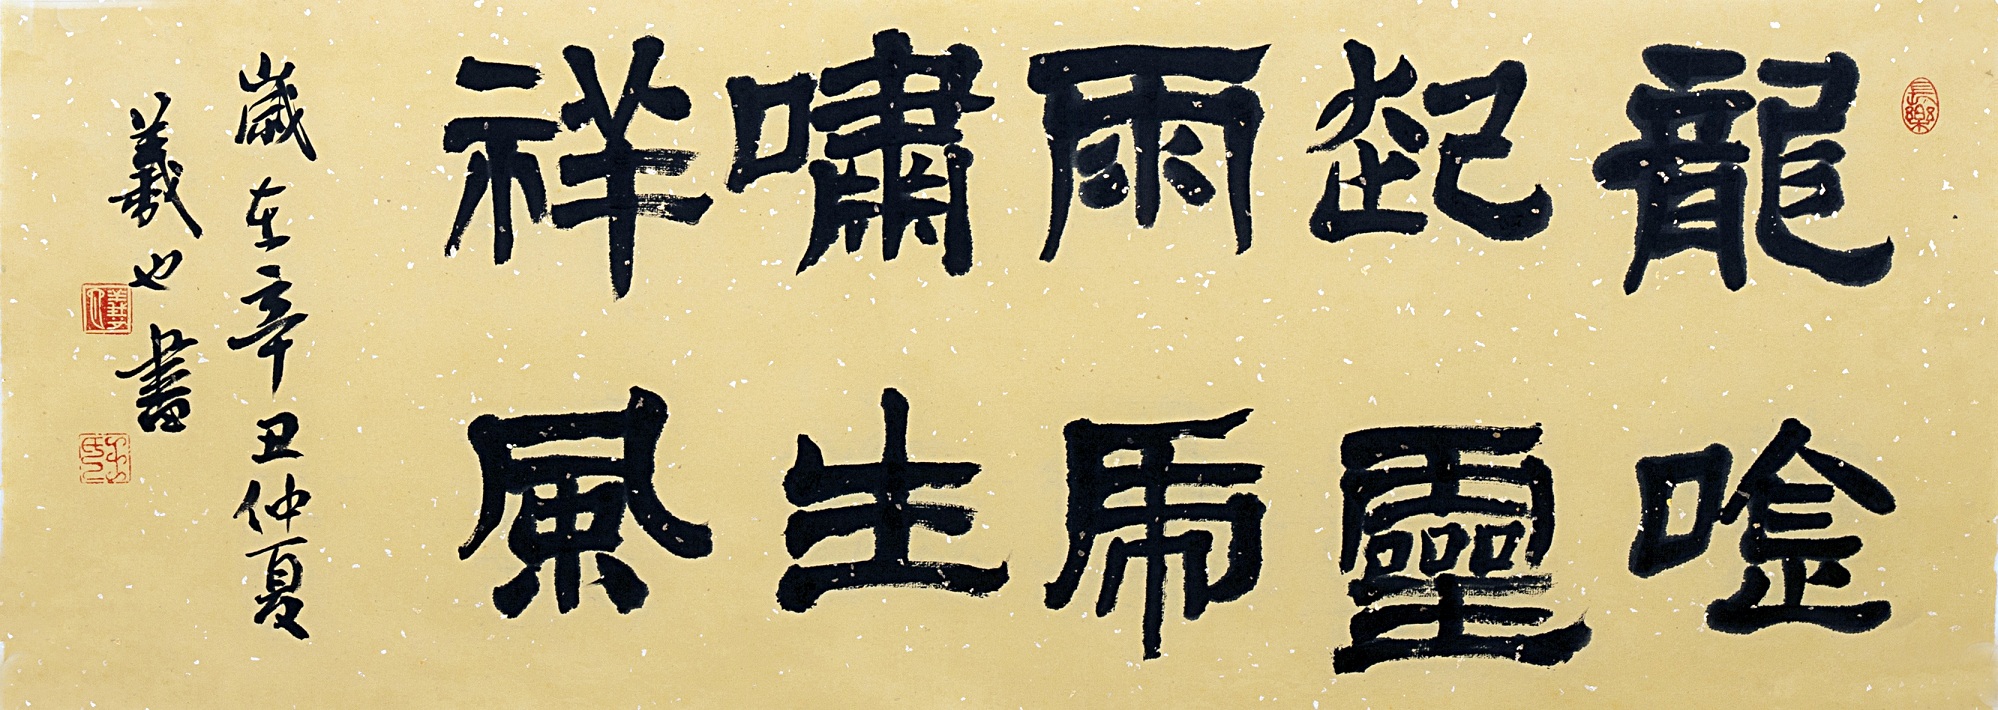 長樂
龍唫
起靈
雨虎
嘯生
祥風
歲在辛丑仲夏
義也書